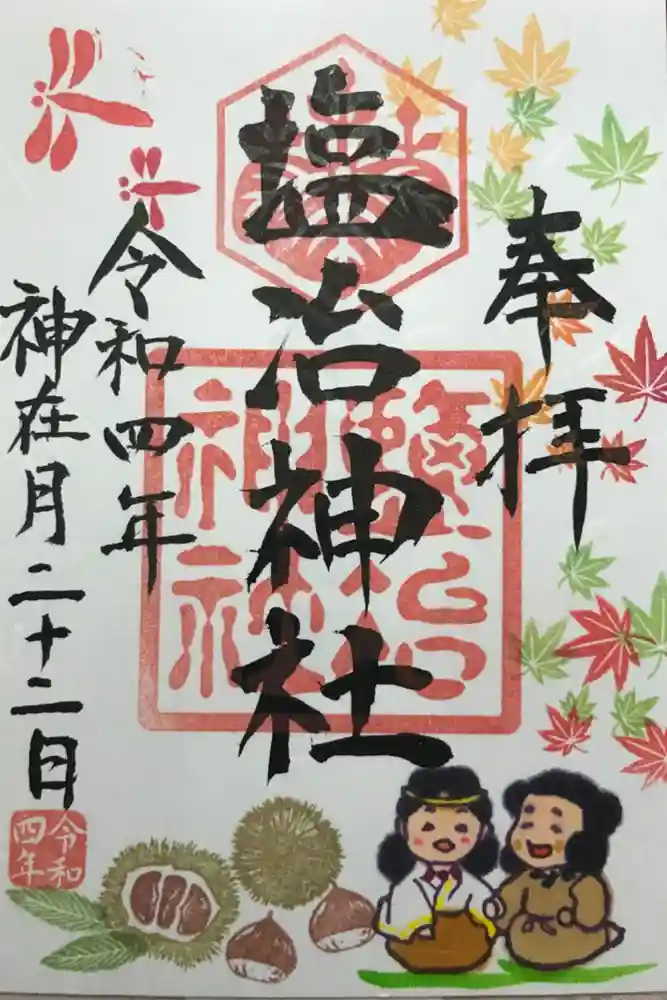 奉拝
塩冶神社
令和四年
神在月二十二日
鹽冶神社
令和四年